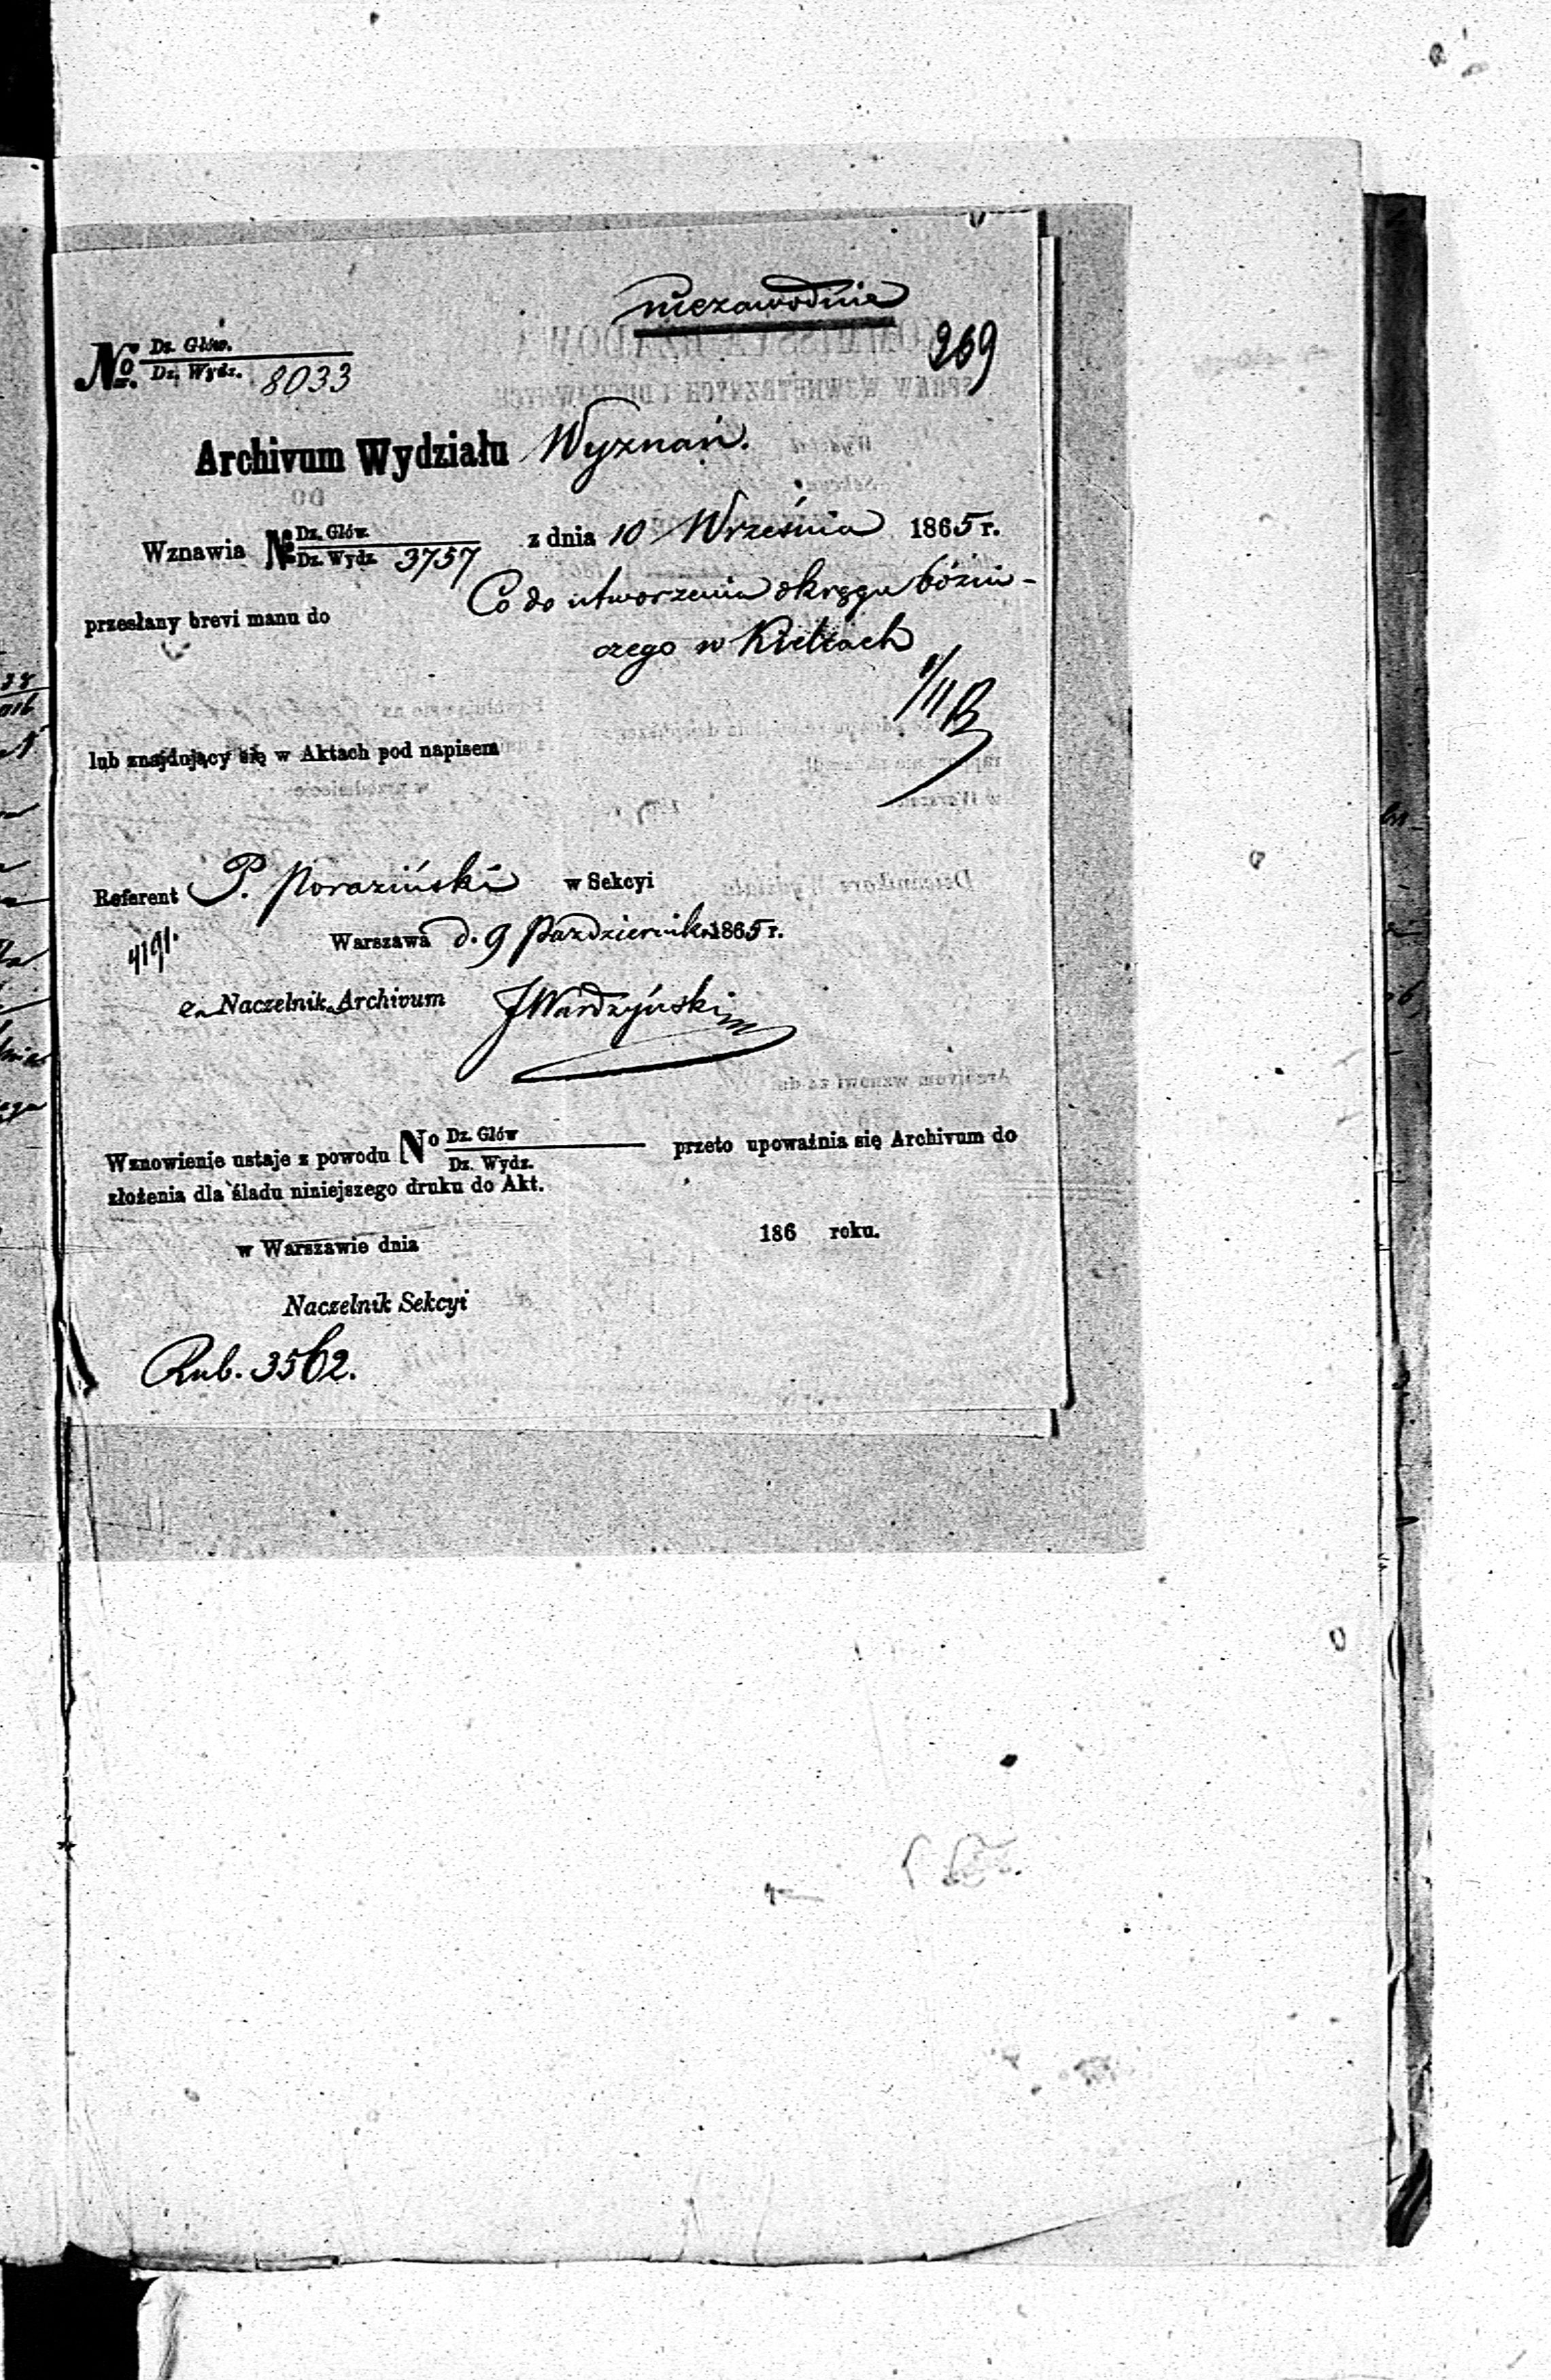 niezawodnie
269
No Dz. Głów.
Dz. Wydz. 8033
Archivum Wydziału Wyznań.
Wznawia No Dz. Głów. z dnia 10 Września 1865 r.
Dz. Wydz. 3757
Co do utworzenia okręgu bóźni-
przesłany brevi manu do
czego w Kielcach
lub znajdujący się w Aktach pod napisem
Referent P. Poraziński w Sekcyi
Warszawa d. 9 Października 1865 r.
4191.
Naczelnik Archivum JWardzyński
Wznowienie ustaje z powodu No Dz. Głów przeto upoważnia się Archivum do
Dz. Wydz.
złożenia dla śladu niniejszego druku do Akt.
w Warszawie dnia 186 roku.
Naczelnik Sekcyi
Rub. 3562.